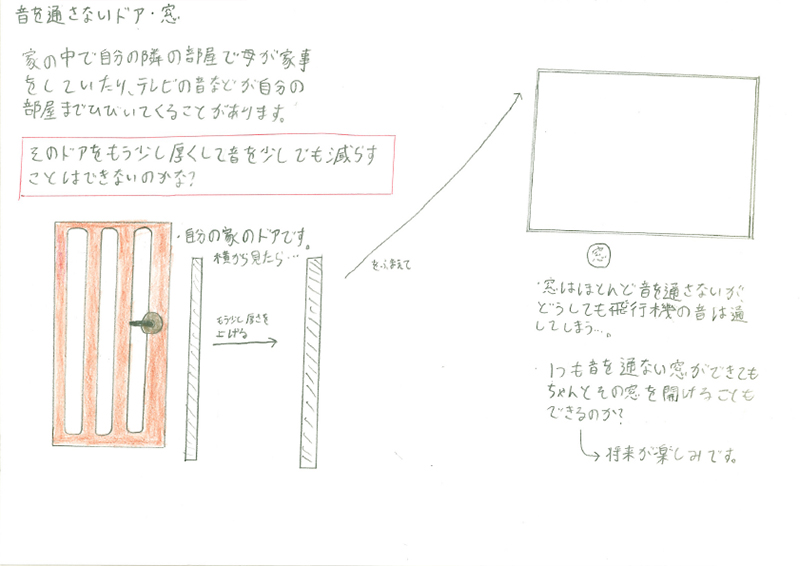 音を通さないドア・窓
家の中で自分の隣の部屋で母が家事
をしていたり、テレビの音などが自分の
部屋までひびいてくることがあります。
そのドアをもう少し厚くして音を少しでも減らす
ことはできないのかな?
・自分の家のドアです。
横から見たら…
もう少し厚さを
上げる
をふまえて
窓
・窓はほとんど音を通さないが、
どうしても飛行機の音は通
してしまう…。
・1つも音を通ない窓ができても
ちゃんとその窓を開けることも
できるのか?
将来が楽しみです。